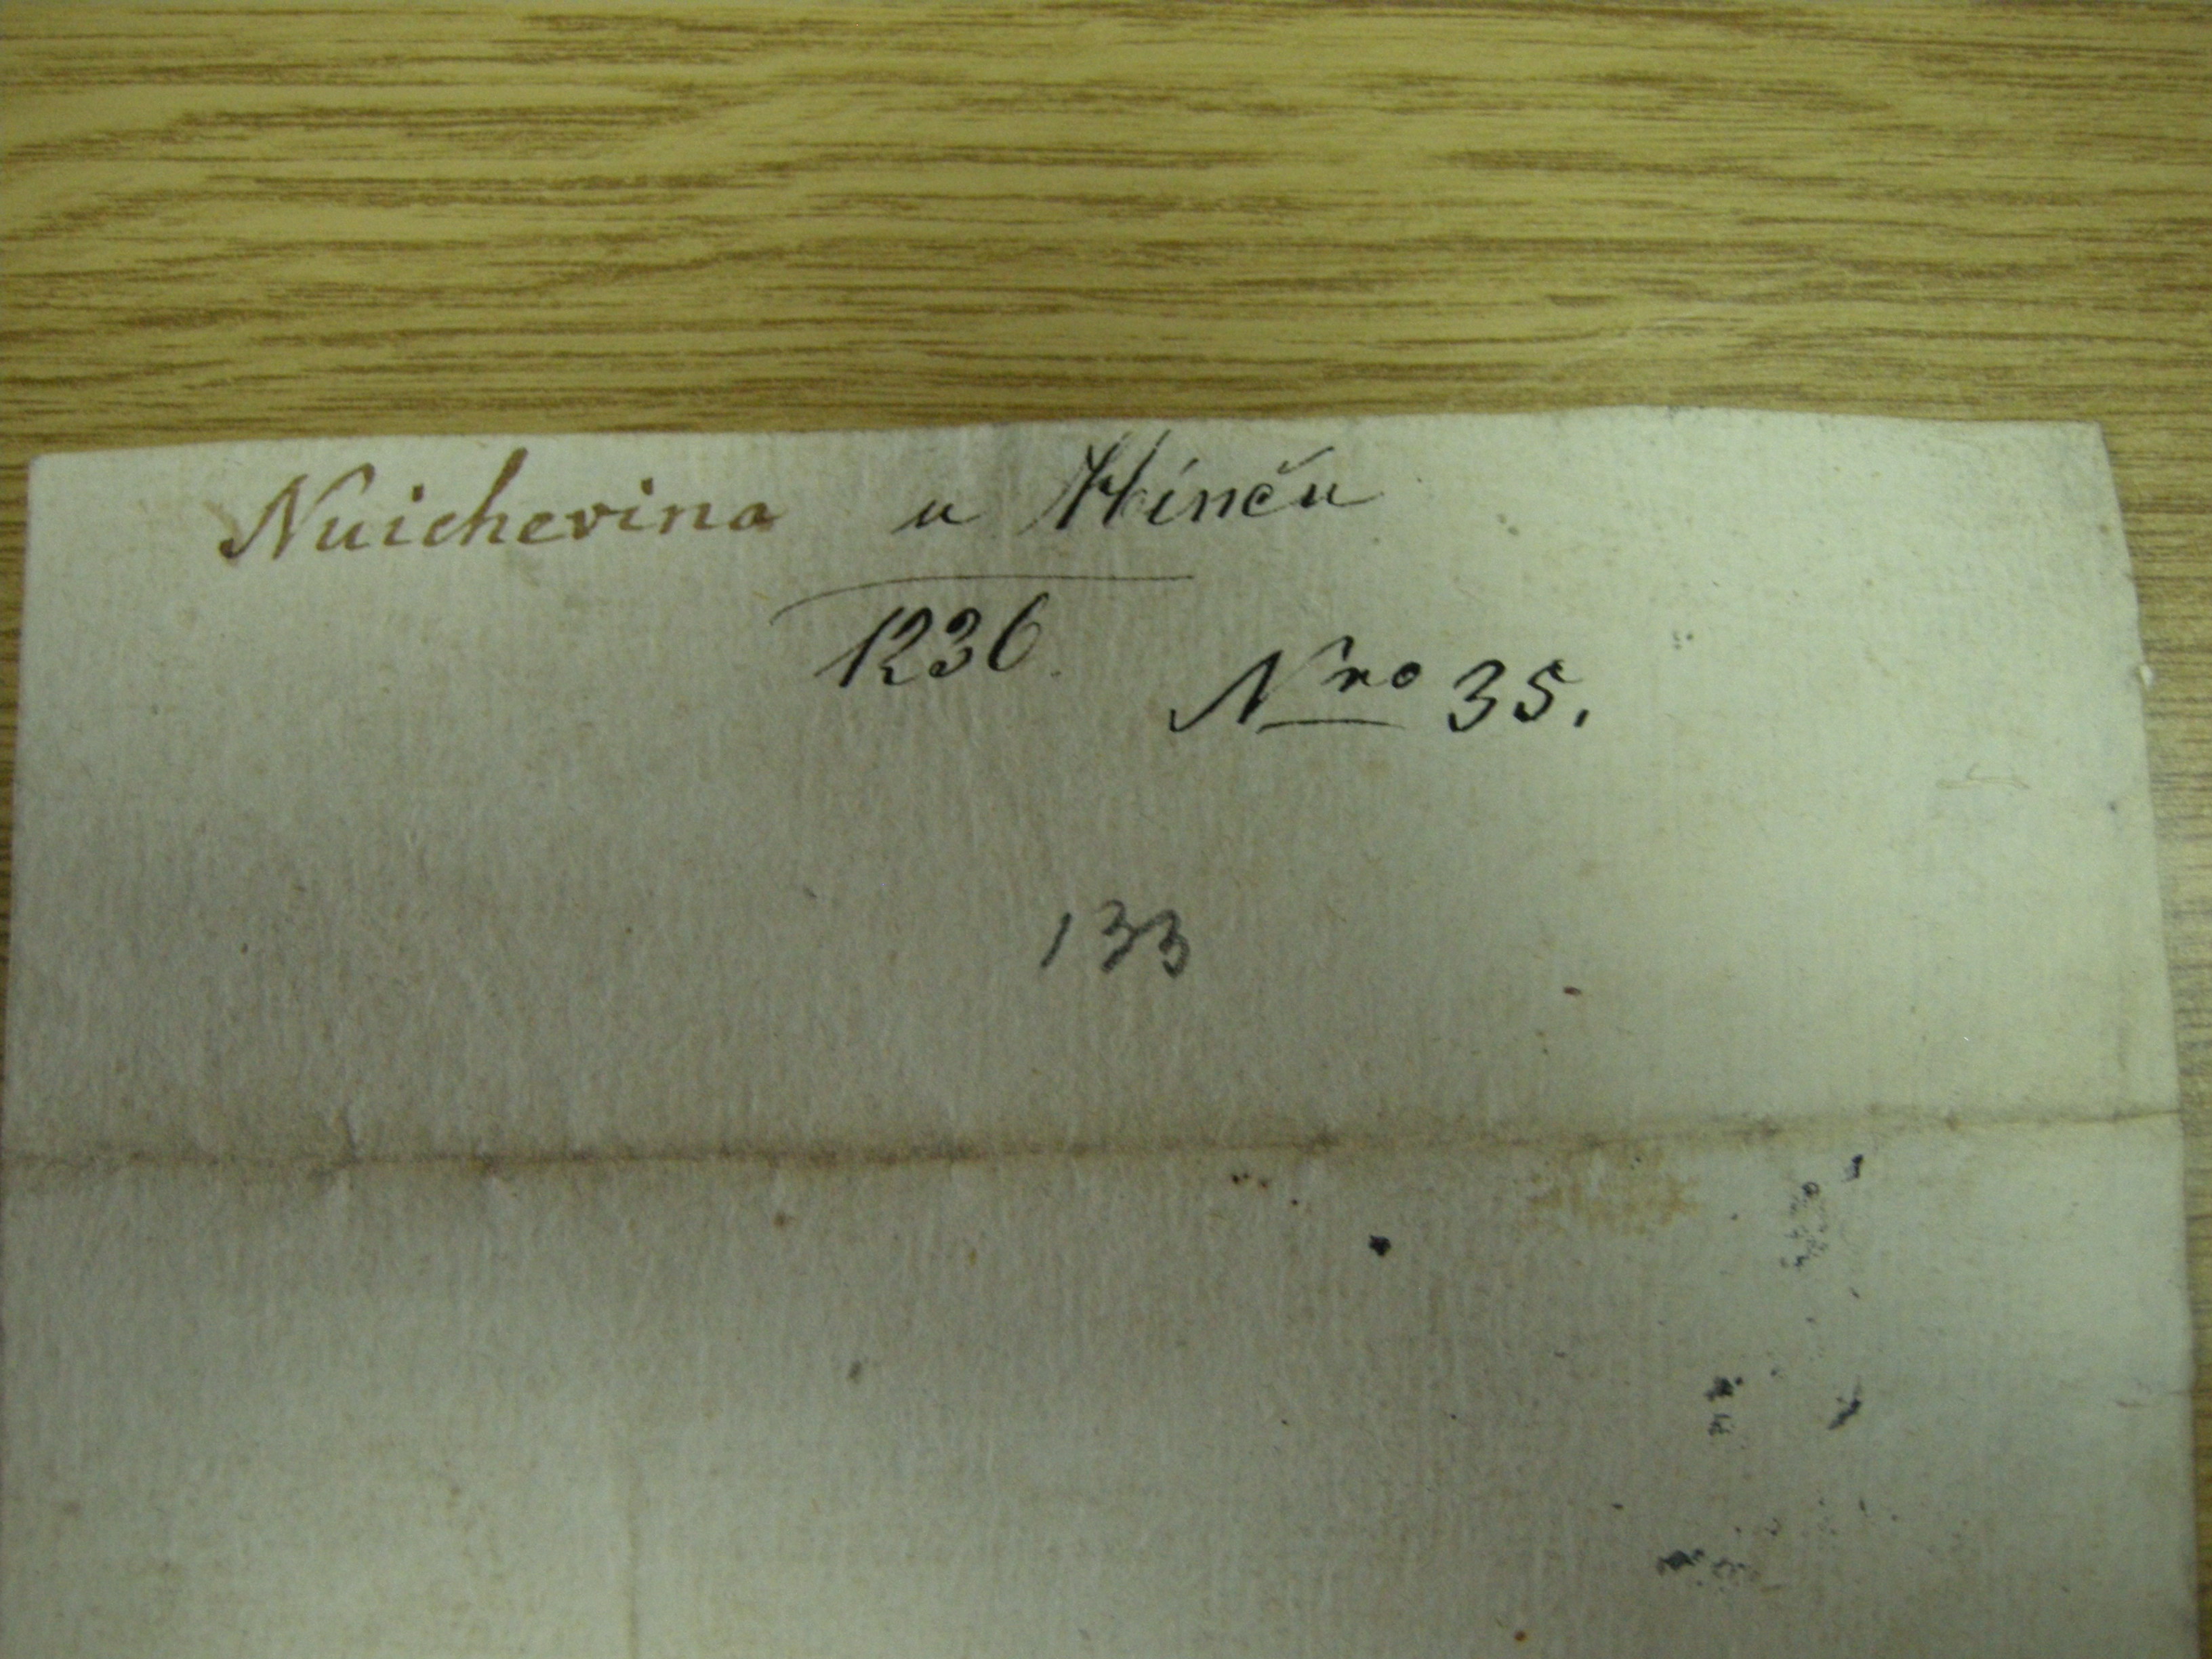 Nuichevina u Hinču
1236.
Nro 35.
133